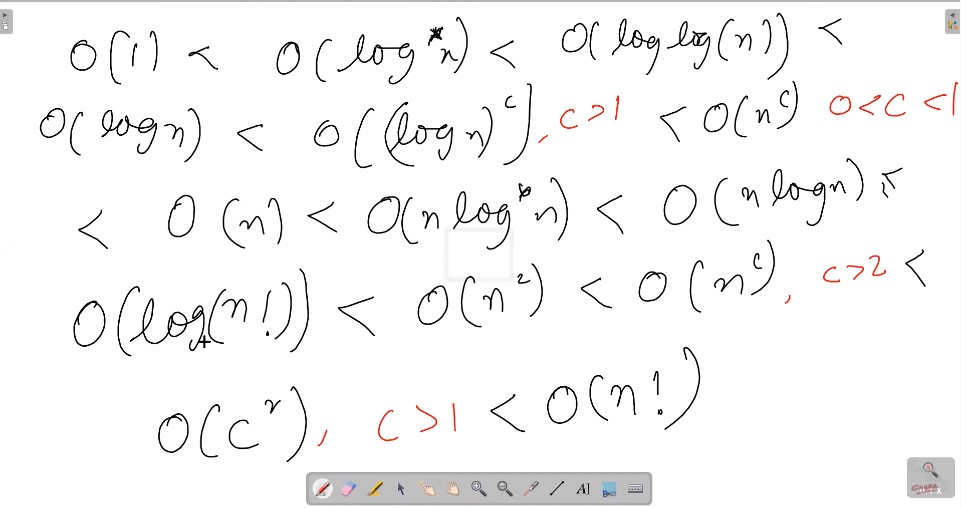 O(1) < O(log*n) < O(log log(n)) <
O(logn) < O((logn)^c), c>1 < O(n^c) 0<c<1
< O(n) < O(n log*n) < O(n logn) <
O(log(n!)) < O(n^2) < O(n^c), c>2 <
O(c^n), c>1 < O(n!)
AI